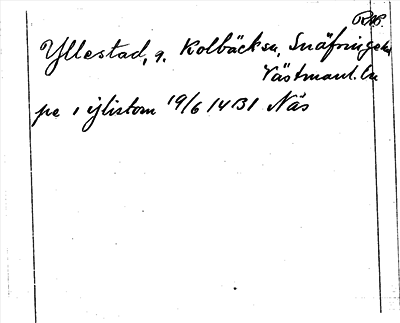 RAP.
Yllestad, g. Kolbäck sn, Snäfringe hd,
Västmanl. ln
pe i ijlistom 19/6 1431 Näs